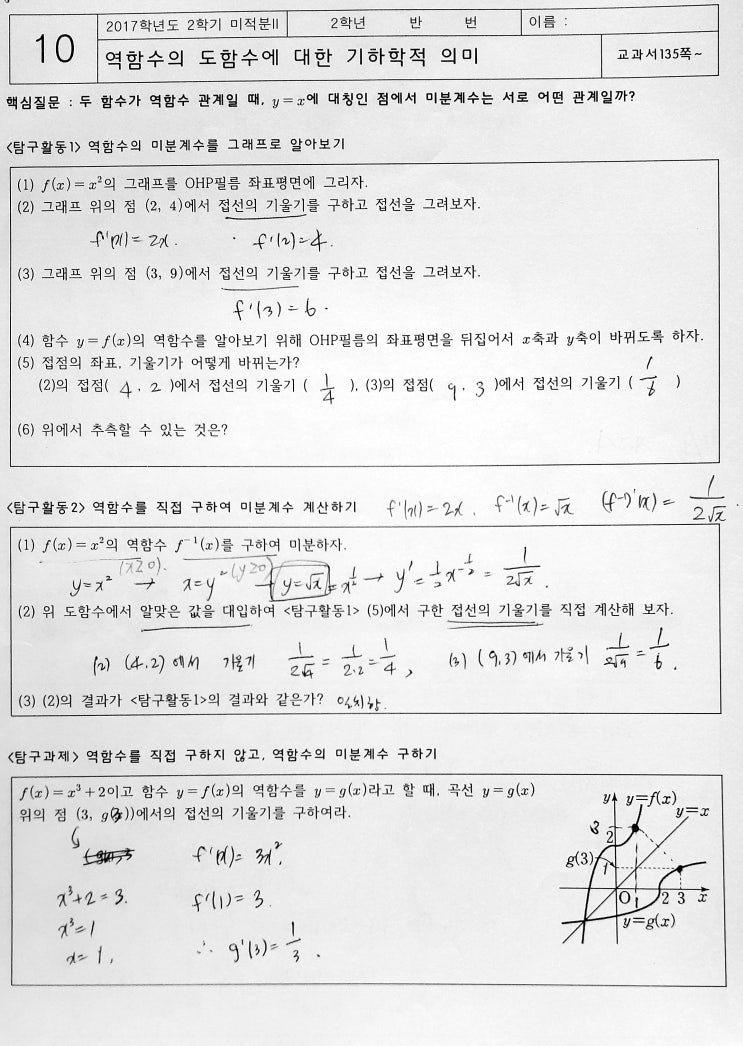 10
2017학년도 2학기 미적분II
2학년 반 번
이름 :
역함수의 도함수에 대한 기하학적 의미
교과서135쪽~
핵심질문 : 두 함수가 역함수 관계일 때, y=x에 대칭인 점에서 미분계수는 서로 어떤 관계일까?
<탐구활동1> 역함수의 미분계수를 그래프로 알아보기
(1) f(x)=x²의 그래프를 OHP필름 좌표평면에 그리자.
(2) 그래프 위의 점 (2, 4)에서 접선의 기울기를 구하고 접선을 그려보자.
f'(x)=2x. f'(2)=4.
(3) 그래프 위의 점 (3, 9)에서 접선의 기울기를 구하고 접선을 그려보자.
f'(3)=6.
(4) 함수 y=f(x)의 역함수를 알아보기 위해 OHP필름의 좌표평면을 뒤집어서 x축과 y축이 바뀌도록 하자.
(5) 접점의 좌표, 기울기가 어떻게 바뀌는가?
(2)의 접점( 4, 2 )에서 접선의 기울기 ( 1/4 ), (3)의 접점( 9, 3 )에서 접선의 기울기 ( 1/6 )
(6) 위에서 추측할 수 있는 것은?
<탐구활동2> 역함수를 직접 구하여 미분계수 계산하기 f'(x)=2x. f⁻¹(x)=√x (f⁻¹)'(x)= 1/2√x.
(1) f(x)=x²의 역함수 f⁻¹(x)를 구하여 미분하자.
(x≥0). (y≥0)
y=x² → x=y² → y=√x = x^1/2 → y'=1/2 x^-1/2 = 1/2√x.
(2) 위 도함수에서 알맞은 값을 대입하여 <탐구활동1> (5)에서 구한 접선의 기울기를 직접 계산해 보자.
(2) (4,2)에서 기울기 1/2√4 = 1/2·2 = 1/4, (3) (9,3)에서 기울기 1/2√9 = 1/6.
(3) (2)의 결과가 <탐구활동1>의 결과와 같은가? 일치함.
<탐구과제> 역함수를 직접 구하지 않고, 역함수의 미분계수 구하기
f(x)=x³+2이고 함수 y=f(x)의 역함수를 y=g(x)라고 할 때, 곡선 y=g(x)
위의 점 (3, g(3))에서의 접선의 기울기를 구하여라.
f'(x)=3x².
x³+2=3. f'(1)=3.
x³=1
x=1, ∴ g'(3)=1/3.
y y=f(x)
y=x
3
2
g(3)
1
O 1 2 3 x
y=g(x)